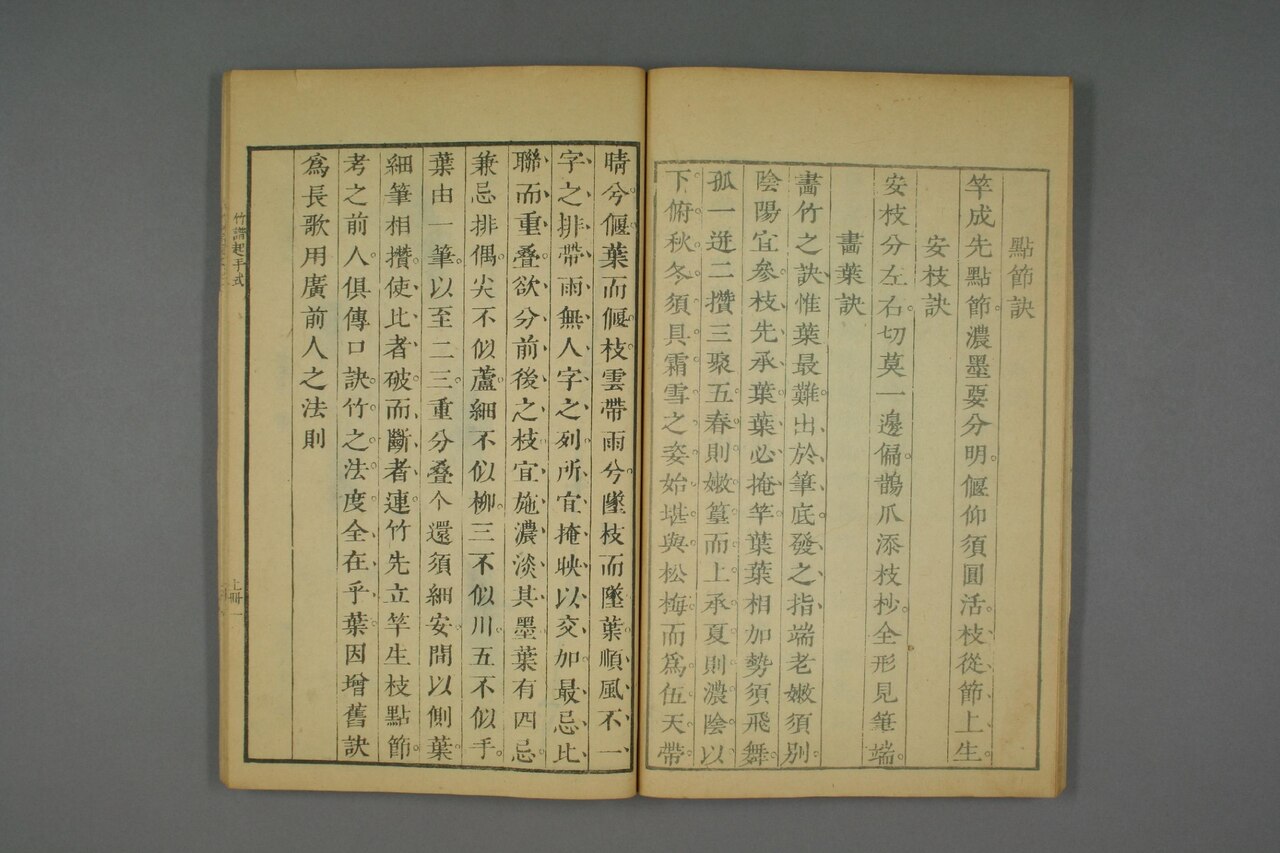 點節訣
竿成先點節濃墨要分明偃仰須圓活枝從節上生
安枝訣
安枝分左右切莫一邊偏鵲爪添枝杪全形見筆端
畫葉訣
畫竹之訣惟葉最難出於筆底發之指端老嫩須別
陰陽宜參枝先承葉葉必掩竿葉葉相加勢須飛舞
孤一迸二攢三聚五春則嫩篁而上承夏則濃陰以
下俯秋冬須具霜雪之姿始堪與松梅而爲伍天帶
晴兮偃葉而偃枝雲帶雨兮墜枝而墜葉順風不一
字之排帶雨無人字之列所宜掩映以交加最忌比
聯而重叠欲分前後之枝宜施濃淡其墨葉有四忌
兼忌排偶尖不似蘆細不似柳三不似川五不似手
葉由一筆以至二三重分叠个還須細安間以側葉
細筆相攢使比者破而斷者連竹先立竿生枝點節
考之前人俱傳口訣竹之法度全在乎葉因增舊訣
爲長歌用廣前人之法則
竹譜起手式
上冊一